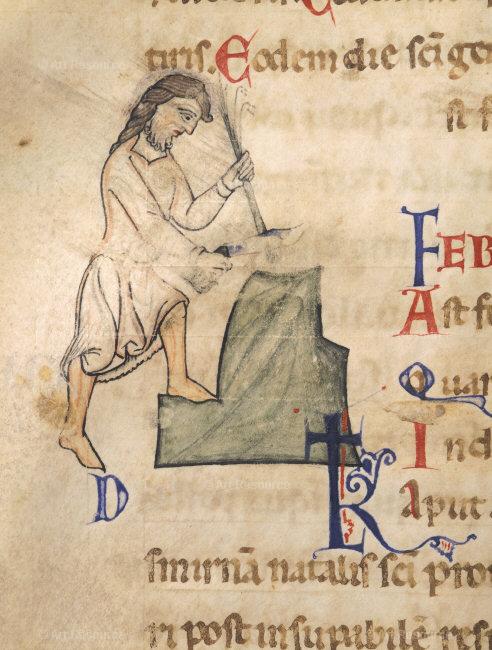 tiris. Eodem die scī ge
st f
D
FEB
Ast f
Quar
Ind
K
aput
smirnā natalis scī pro
ri post insupabilē res